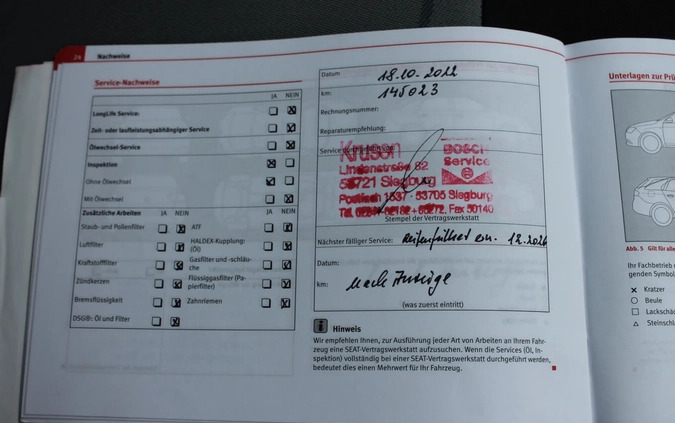 26 Nachweise
Service-Nachweise
JA NEIN
LongLife Service:
Zeit- oder laufleistungsabhängiger Service
Ölwechsel-Service
Inspektion
Ohne Ölwechsel
Mit Ölwechsel
Zusätzliche Arbeiten JA NEIN JA NEIN
Staub- und Pollenfilter ATF
Luftfilter HALDEX-Kupplung:
(Öl)
Kraftstofffilter Gasfilter und -schläu-
che
Zündkerzen Flüssiggasfilter (Pa-
pierfilter)
Bremsflüssigkeit Zahnriemen
DSG®: Öl und Filter
Datum 18.10.2022
km: 145023
Rechnungsnummer:
Reparaturempfehlung:
Kruson BOSCH
Lindenstraße 82 Service
53721 Siegburg
Postfach 1537 · 53705 Siegburg
Fax 50140
Stempel der Vertragswerkstatt
Nächster fälliger Service:
Datum:
km: nach Anzeige
(was zuerst eintritt)
Hinweis
Wir empfehlen Ihnen, zur Ausführung jeder Art von Arbeiten an Ihrem Fahr-
zeug eine SEAT-Vertragswerkstatt aufzusuchen. Wenn die Services (Öl, In-
spektion) vollständig bei einer SEAT-Vertragswerkstatt durchgeführt werden,
bedeutet dies einen Mehrwert für Ihr Fahrzeug.
Unterlagen zur Prü
Abb. 5 Gilt für alle
Ihr Fachbetrieb
genden Symbol
Kratzer
Beule
Lackschä
Steinschl